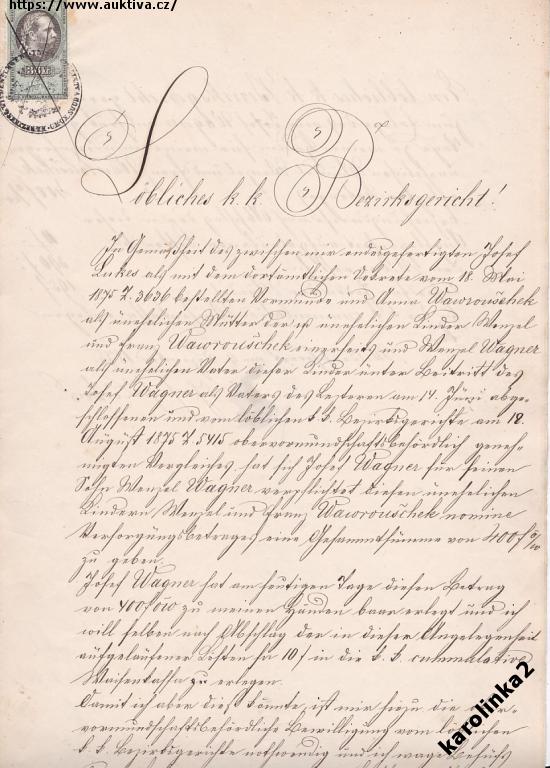 https://www.auktiva.cz/
Löbliches k. k. Bezirksgericht!
In Gemäßheit des zwischen mir endesgefertigten Josef
Lukes als mit dem dortämtlichen Dekrete vom 18. Mai
1875 Z. 3636 bestellten Vormunde und Anna Wawrouschek
als unehelichen Mutter der unehelichen Kinder Wenzel
und Franz Wawrouschek einerseits und Wenzel Wagner
als unehelichen Vater dieser Kinder unter Beitritt des
Josef Wagner als Vaters des Letzteren am 14. Juni abge-
schlossenen und vom löblichen k. k. Bezirksgerichte am 18.
August 1875 Z. 5415 obervormundschaftsbehördlich geneh-
migten Vergleiches, hat sich Josef Wagner für seinen
Sohn Wenzel Wagner verpflichtet diesen unehelichen
Kindern Wenzel und Franz Wawrouschek nomine
Versorgungsbetrages eine Gesammtsumme von 400 f
zu geben.
Josef Wagner hat am heutigen Tage diesen Betrag
von 400 f öw zu meinen Händen baar erlegt und ich
will selben nach Abschlag der in dieser Angelegenheit
aufgelaufener Kosten pr 10 f in die k. k. cummulative
Waisenkassa zu erlegen.
Damit ich aber dieß könnte, ist mir hiezu die ober-
vormundschaftsbehördliche Bewilligung vom löblichen
k. k. Bezirksgerichte nothwendig und ich wage behufs
karolinka2